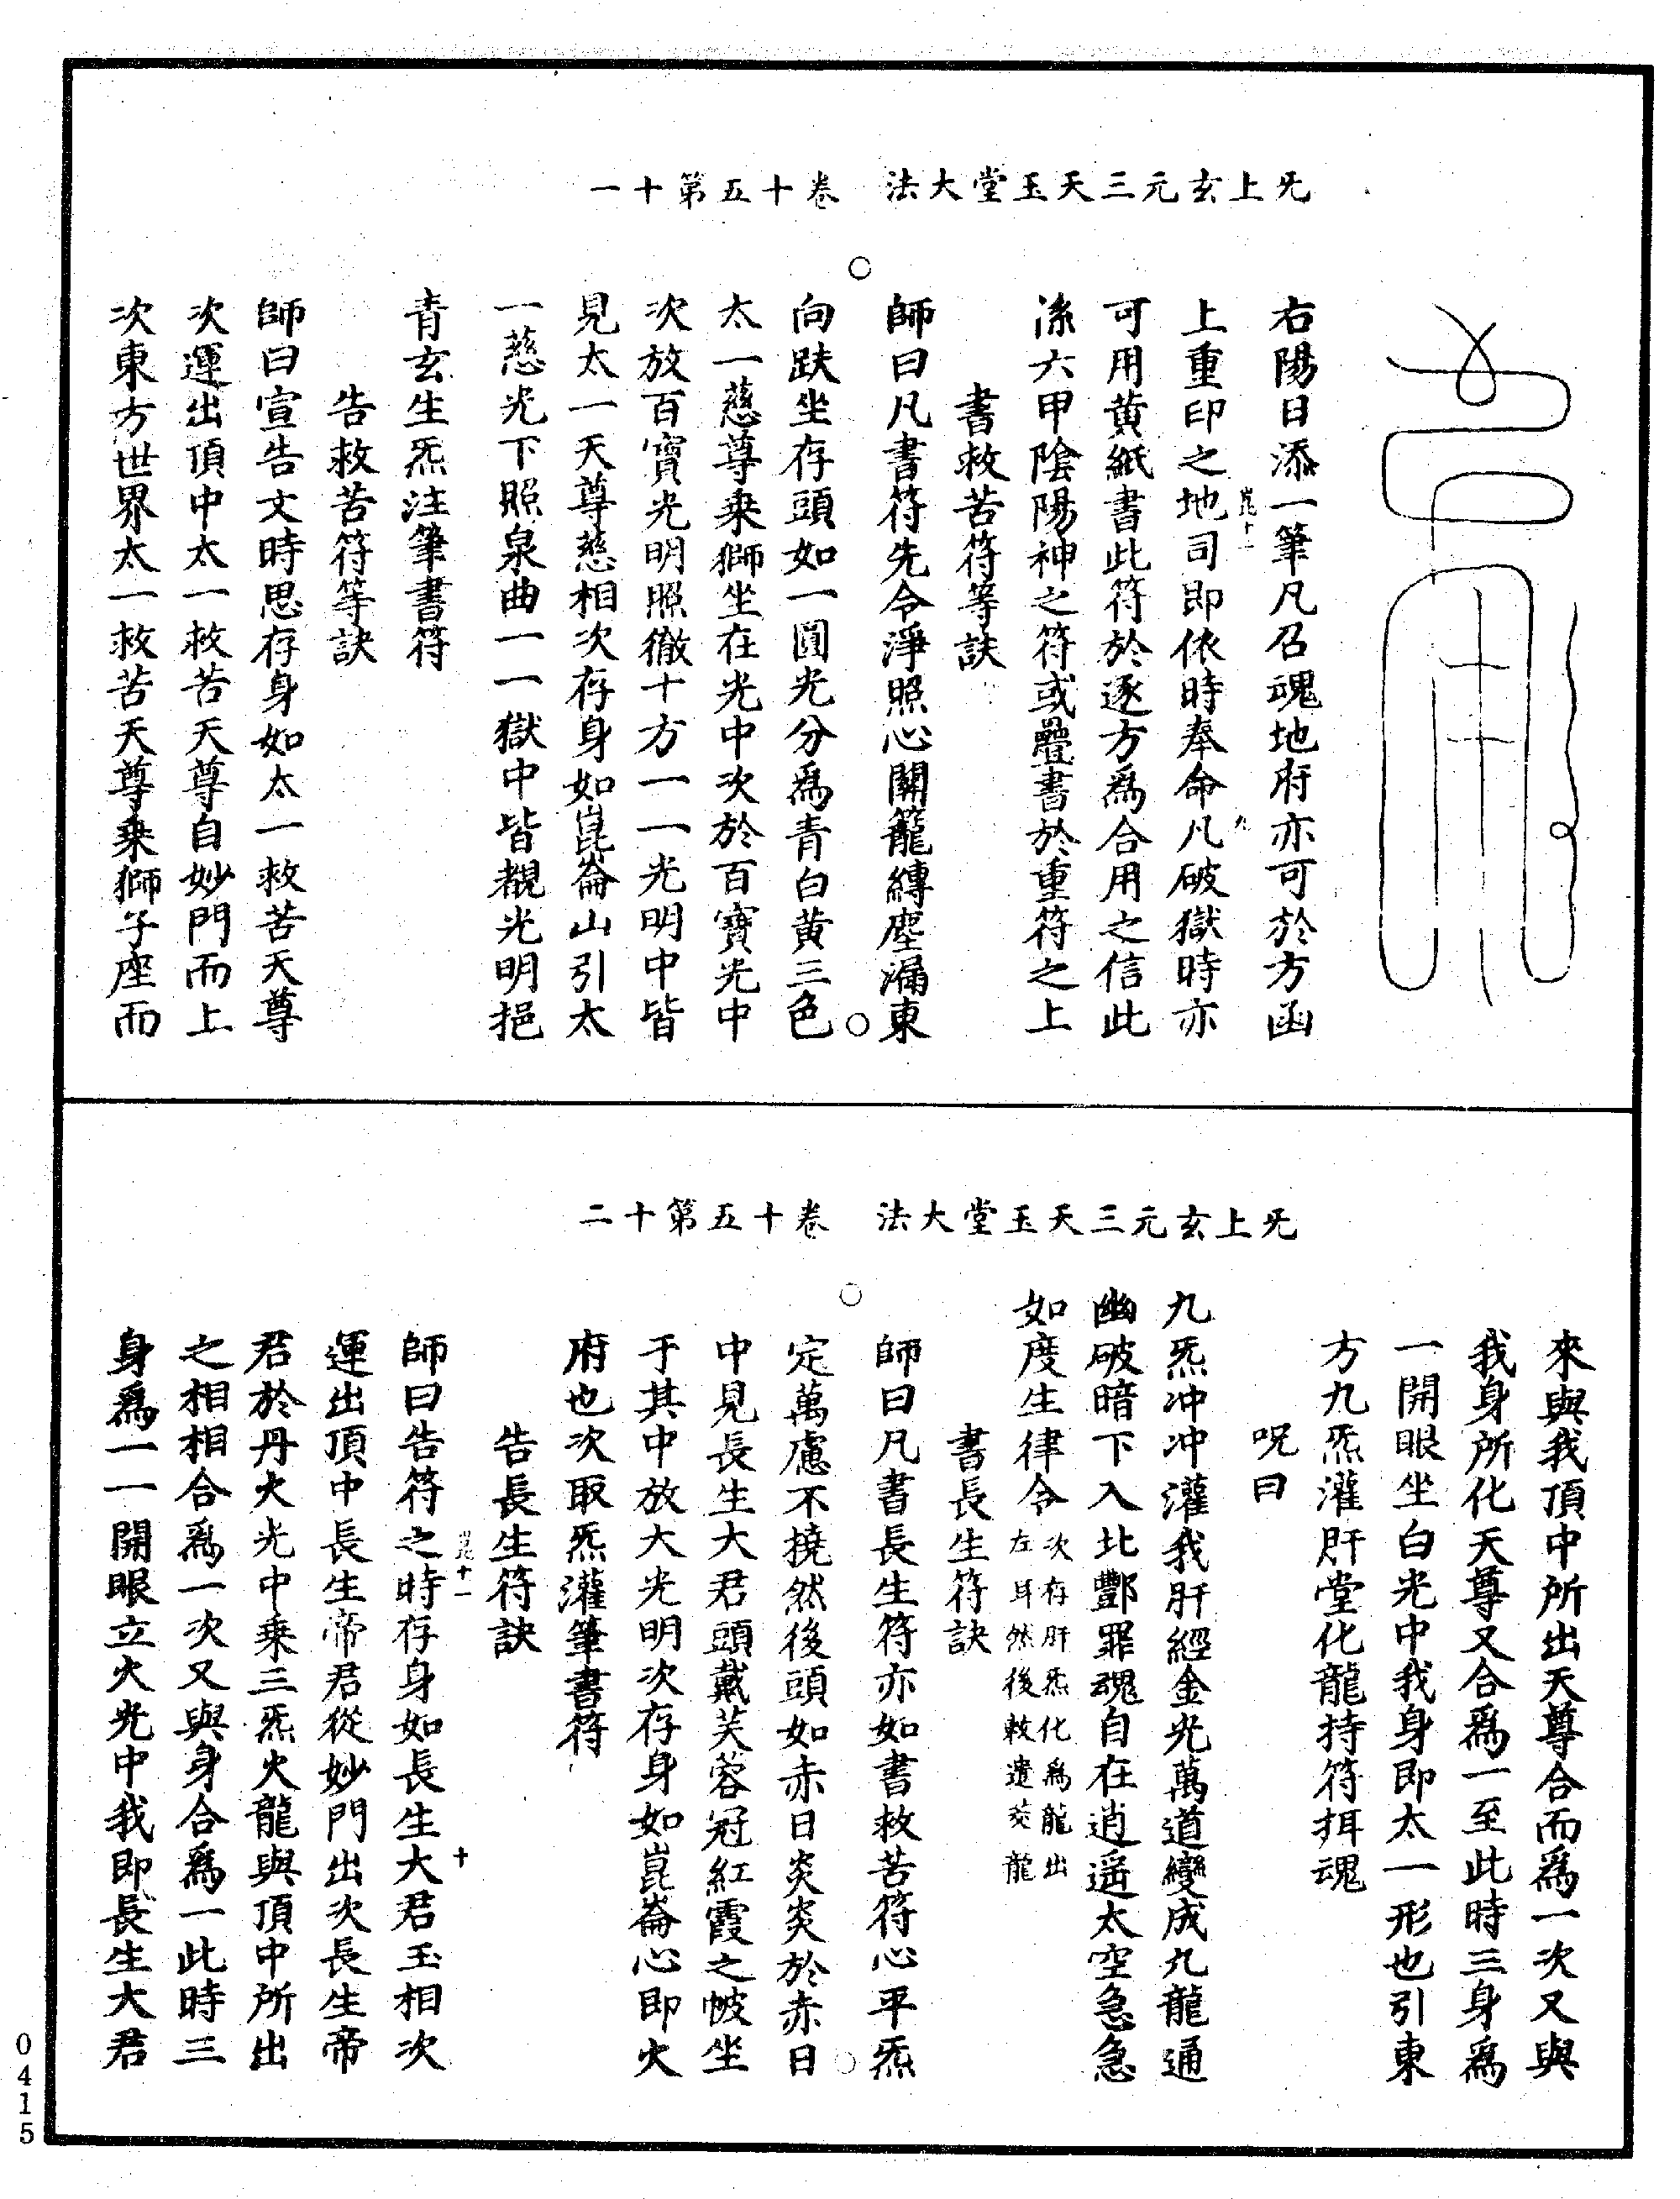 无上玄元三天玉堂大法　卷十五第十一
右陽日添一筆凡召魂地府亦可於方函
上重印之地司即依時奉命凡破獄時亦
崑十一
九
可用黄紙書此符於逐方爲合用之信此
係六甲陰陽神之符或疊書於重符之上
書救苦符等訣
師曰凡書符先令淨照心關籠縳塵漏東
向趺坐存頭如一圓光分爲青白黄三色
太一慈尊乗獅坐在光中次於百寳光中
次放百寳光明照徹十方一一光明中皆
見太一天尊慈相次存身如崑崙山引太
一慈光下照泉曲一一獄中皆覩光明挹
青玄生炁注筆書符
告救苦符等訣
師曰宣告文時思存身如太一救苦天尊
次運出頂中太一救苦天尊自妙門而上
次東方世界太一救苦天尊乗獅子座而
无上玄元三天玉堂大法　卷十五第十二
來與我頂中所出天尊合而爲一次又與
我身所化天尊又合爲一至此時三身爲
一開眼坐白光中我身即太一形也引東
方九炁灌肝堂化龍持符拜魂
呪曰
九炁冲冲灌我肝經金光萬道變成九龍通
幽破暗下入北酆罪魂自在逍遥太空急急
如度生律令次存肝炁化爲龍出左耳然後敕遣焚龍
書長生符訣
師曰凡書長生符亦如書救苦符心平炁
定萬慮不撓然後頭如赤日炎炎於赤日
中見長生大君頭戴芙蓉冠紅霞之帔坐
于其中放大光明次存身如崑崙心即火
府也次取炁灌筆書符
告長生符訣
師曰告符之時存身如長生大君玉相次
崑十一
十
運出頂中長生帝君從妙門出次長生帝
君於丹火光中乗三炁火龍與頂中所出
之相相合爲一次又與身合爲一此時三
身爲一一開眼立火光中我即長生大君
0415